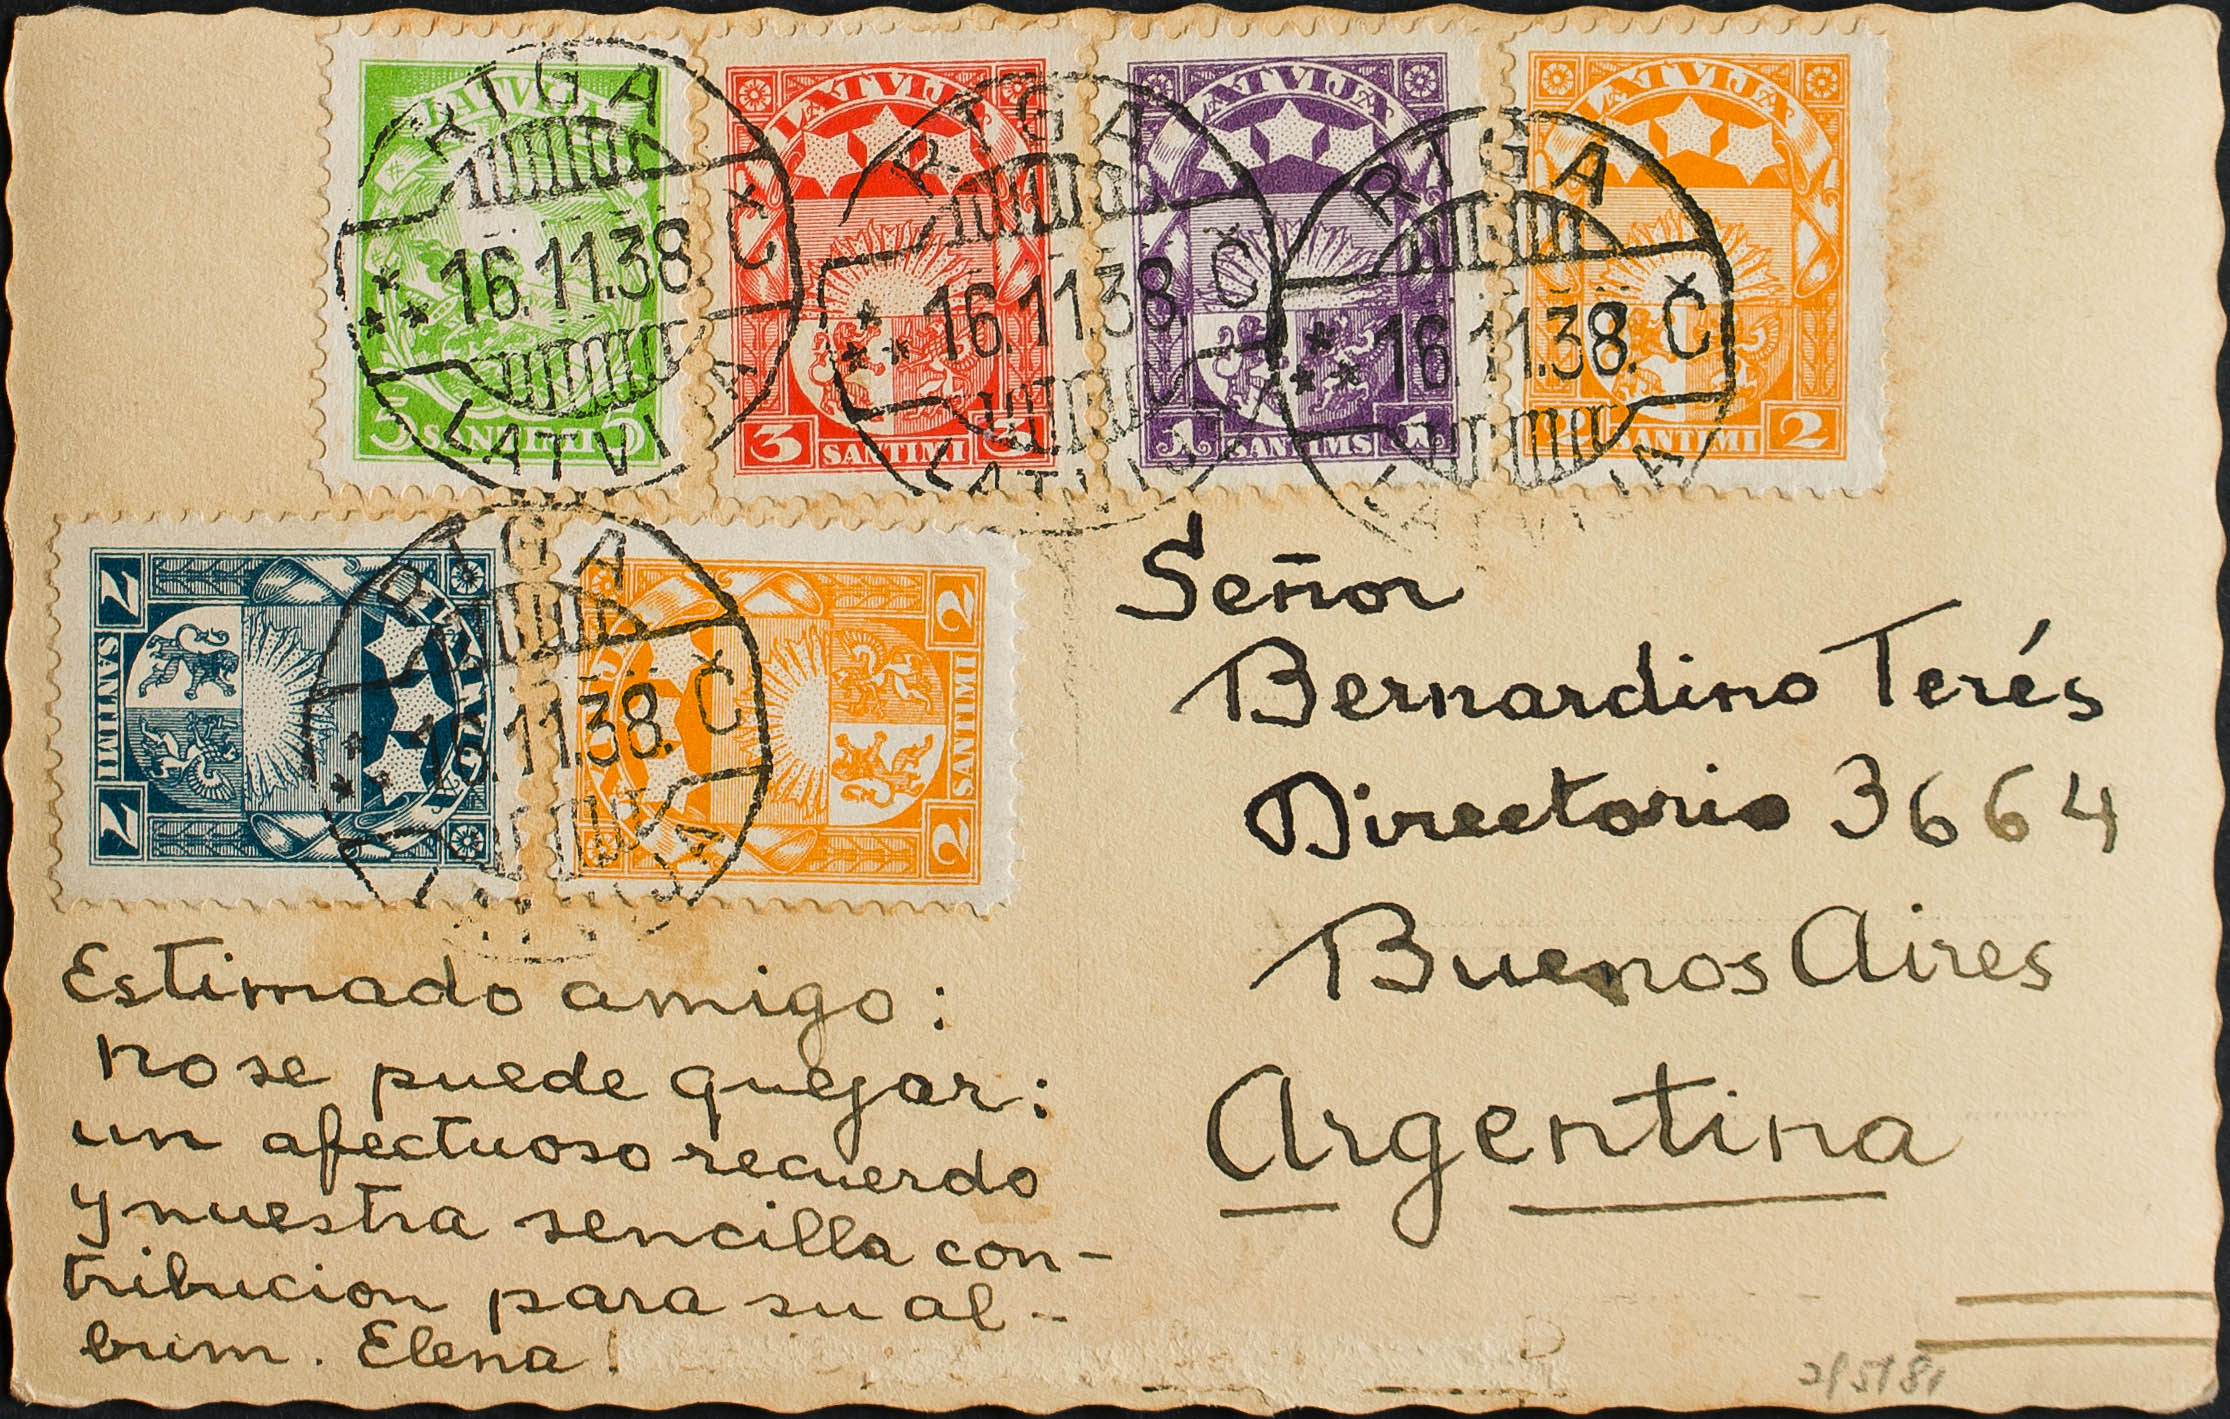 LATVIJA
5 SANTIMI 5
LATVIJA
3 SANTIMI 3
LATVIJA
1 SANTIMS 1
LATVIJA
2 SANTIMI 2
RIGA
16.11.38. Č
LATVIJA
RIGA
16.11.38. Č
LATVIJA
RIGA
16.11.38. Č
LATVIJA
LATVIJA
2 SANTIMI 2
LATVIJA
2 SANTIMI 2
RIGA
16.11.38. Č
LATVIJA
Señor
Bernardino Terés
Directorio 3664
Buenos Aires
Argentina
Estimado amigo:
no se puede quejar:
un afectuoso recuerdo
y nuestra sencilla con-
tribucion para su al-
bum. Elena